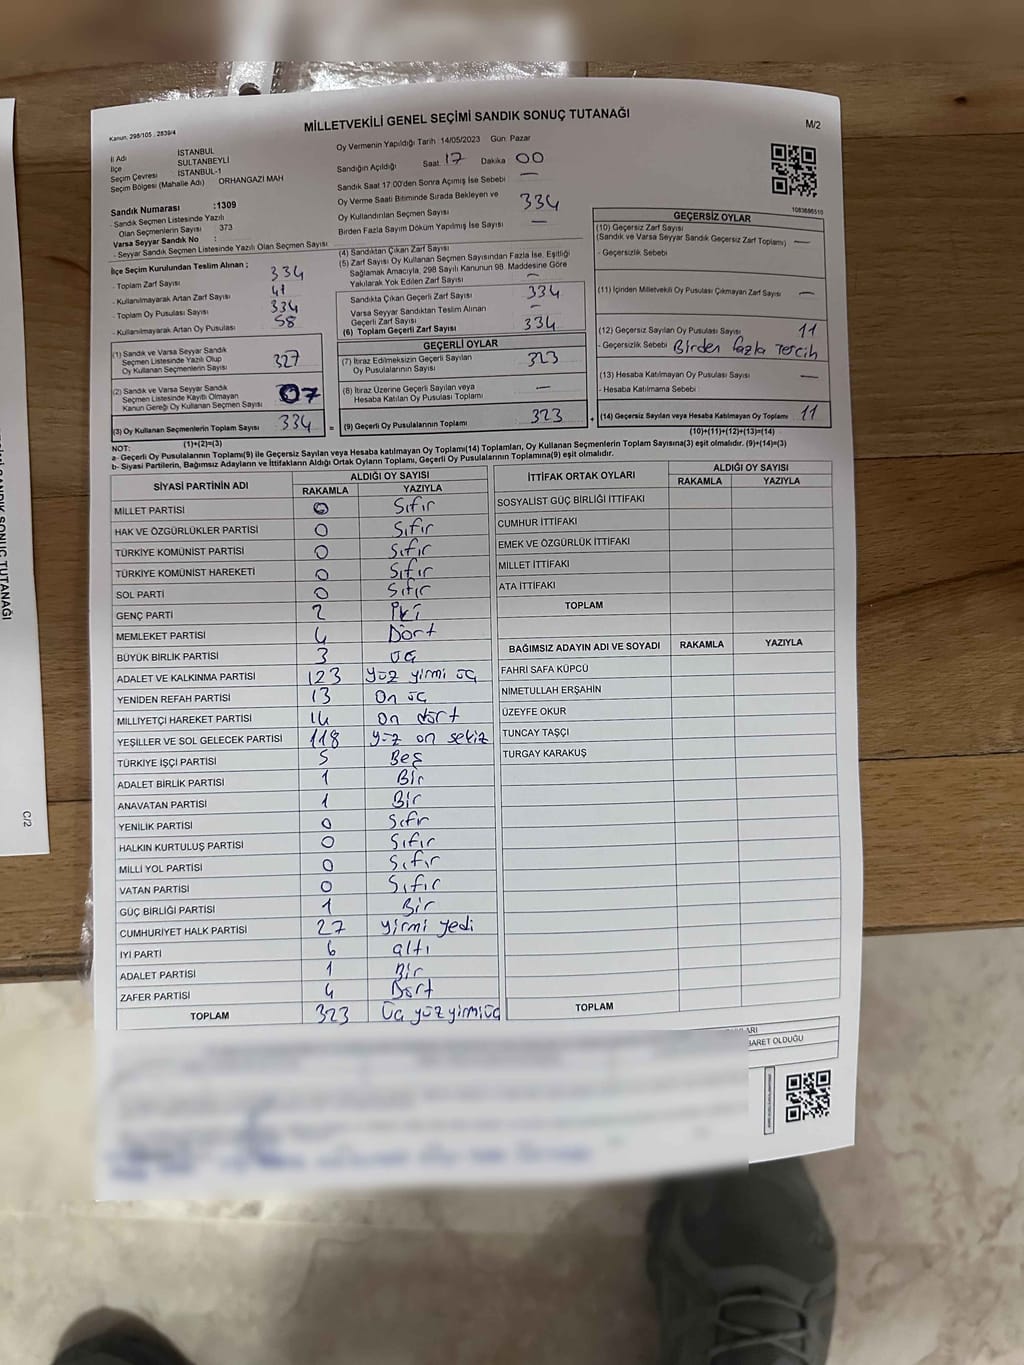 MİLLETVEKİLİ GENEL SEÇİMİ SANDIK SONUÇ TUTANAĞI
M/2
Kanun, 298/105 , 2839/4
İl Adı İSTANBUL
İlçe SULTANBEYLİ
Seçim Çevresi İSTANBUL-1
Seçim Bölgesi (Mahalle Adı) ORHANGAZİ MAH
Sandık Numarası :1309
- Sandık Seçmen Listesinde Yazılı
Olan Seçmenlerin Sayısı 373
Varsa Seyyar Sandık No :
- Seyyar Sandık Seçmen Listesinde Yazılı Olan Seçmen Sayısı
Oy Vermenin Yapıldığı Tarih 14/05/2023 Gün Pazar
Sandığın Açıldığı Saat 17 Dakika 00
Sandık Saat 17:00'den Sonra Açımış İse Sebebi —
Oy Verme Saati Bitiminde Sırada Bekleyen ve
Oy Kullandırılan Seçmen Sayısı 334
Birden Fazla Sayım Döküm Yapılmış İse Sayısı —
1083686510
İlçe Seçim Kurulundan Teslim Alınan ;
- Toplam Zarf Sayısı 334
- Kullanılmayarak Artan Zarf Sayısı 41
- Toplam Oy Pusulası Sayısı 334
- Kullanılmayarak Artan Oy Pusulası 58
(1) Sandık ve Varsa Seyyar Sandık
Seçmen Listesinde Yazılı Olup
Oy Kullanan Seçmenlerin Sayısı 327
(2) Sandık ve Varsa Seyyar Sandık
Seçmen Listesinde Kayıtlı Olmayan
Kanun Gereği Oy Kullanan Seçmen Sayısı 07
(3) Oy Kullanan Seçmenlerin Toplam Sayısı 334 =
(1)+(2)=(3)
(4) Sandıktan Çıkan Zarf Sayısı
(5) Zarf Sayısı Oy Kullanan Seçmen Sayısından Fazla İse, Eşitliği
Sağlamak Amacıyla, 298 Sayılı Kanunun 98. Maddesine Göre
Yakılarak Yok Edilen Zarf Sayısı —
Sandıkta Çıkan Geçerli Zarf Sayısı 334
Varsa Seyyar Sandıktan Teslim Alınan
Geçerli Zarf Sayısı —
(6) Toplam Geçerli Zarf Sayısı 334
GEÇERLİ OYLAR
(7) İtiraz Edilmeksizin Geçerli Sayılan
Oy Pusulalarının Sayısı 323
(8) İtiraz Üzerine Geçerli Sayılan veya
Hesaba Katılan Oy Pusulası Toplamı —
(9) Geçerli Oy Pusulalarının Toplamı 323 +
GEÇERSİZ OYLAR
(10) Geçersiz Zarf Sayısı
(Sandık ve Varsa Seyyar Sandık Geçersiz Zarf Toplamı) —
- Geçersizlik Sebebi
(11) İçinden Milletvekili Oy Pusulası Çıkmayan Zarf Sayısı —
(12) Geçersiz Sayılan Oy Pusulası Sayısı 11
- Geçersizlik Sebebi Birden fazla Tercih
(13) Hesaba Katılmayan Oy Pusulası Sayısı —
- Hesaba Katılmama Sebebi
(14) Geçersiz Sayılan veya Hesaba Katılmayan Oy Toplamı 11
(10)+(11)+(12)+(13)=(14)
NOT:
a- Geçerli Oy Pusulalarının Toplamı(9) ile Geçersiz Sayılan veya Hesaba katılmayan Oy Toplamı(14) Toplamları, Oy Kullanan Seçmenlerin Toplam Sayısına(3) eşit olmalıdır. (9)+(14)=(3)
b- Siyasi Partilerin, Bağımsız Adayların ve İttifakların Aldığı Ortak Oyların Toplamı, Geçerli Oy Pusulalarının Toplamına(9) eşit olmalıdır.
SİYASİ PARTİNİN ADI ALDIĞI OY SAYISI
RAKAMLA YAZIYLA
MİLLET PARTİSİ 0 Sıfır
HAK VE ÖZGÜRLÜKLER PARTİSİ 0 Sıfır
TÜRKİYE KOMÜNİST PARTİSİ 0 Sıfır
TÜRKİYE KOMÜNİST HAREKETİ 0 Sıfır
SOL PARTİ 0 Sıfır
GENÇ PARTİ 2 İki
MEMLEKET PARTİSİ 4 Dört
BÜYÜK BİRLİK PARTİSİ 3 üç
ADALET VE KALKINMA PARTİSİ 123 yüz yirmi üç
YENİDEN REFAH PARTİSİ 13 On üç
MİLLİYETÇİ HAREKET PARTİSİ 14 on dört
YEŞİLLER VE SOL GELECEK PARTİSİ 118 yüz on sekiz
TÜRKİYE İŞÇİ PARTİSİ 5 Beş
ADALET BİRLİK PARTİSİ 1 Bir
ANAVATAN PARTİSİ 1 Bir
YENİLİK PARTİSİ 0 Sıfır
HALKIN KURTULUŞ PARTİSİ 0 Sıfır
MİLLİ YOL PARTİSİ 0 Sıfır
VATAN PARTİSİ 0 Sıfır
GÜÇ BİRLİĞİ PARTİSİ 1 Bir
CUMHURİYET HALK PARTİSİ 27 yirmi yedi
İYİ PARTİ 6 altı
ADALET PARTİSİ 1 Bir
ZAFER PARTİSİ 4 Dört
TOPLAM 323 Üç yüz yirmi üç
İTTİFAK ORTAK OYLARI ALDIĞI OY SAYISI
RAKAMLA YAZIYLA
SOSYALİST GÜÇ BİRLİĞİ İTTİFAKI
CUMHUR İTTİFAKI
EMEK VE ÖZGÜRLÜK İTTİFAKI
MİLLET İTTİFAKI
ATA İTTİFAKI
TOPLAM
BAĞIMSIZ ADAYIN ADI VE SOYADI RAKAMLA YAZIYLA
FAHRİ SAFA KÜPCÜ
NİMETULLAH ERŞAHİN
ÜZEYFE OKUR
TUNCAY TAŞÇI
TURGAY KARAKUŞ
TOPLAM
BARET OLDUĞU
SANDIK SONUÇ TUTANAĞI
C/2